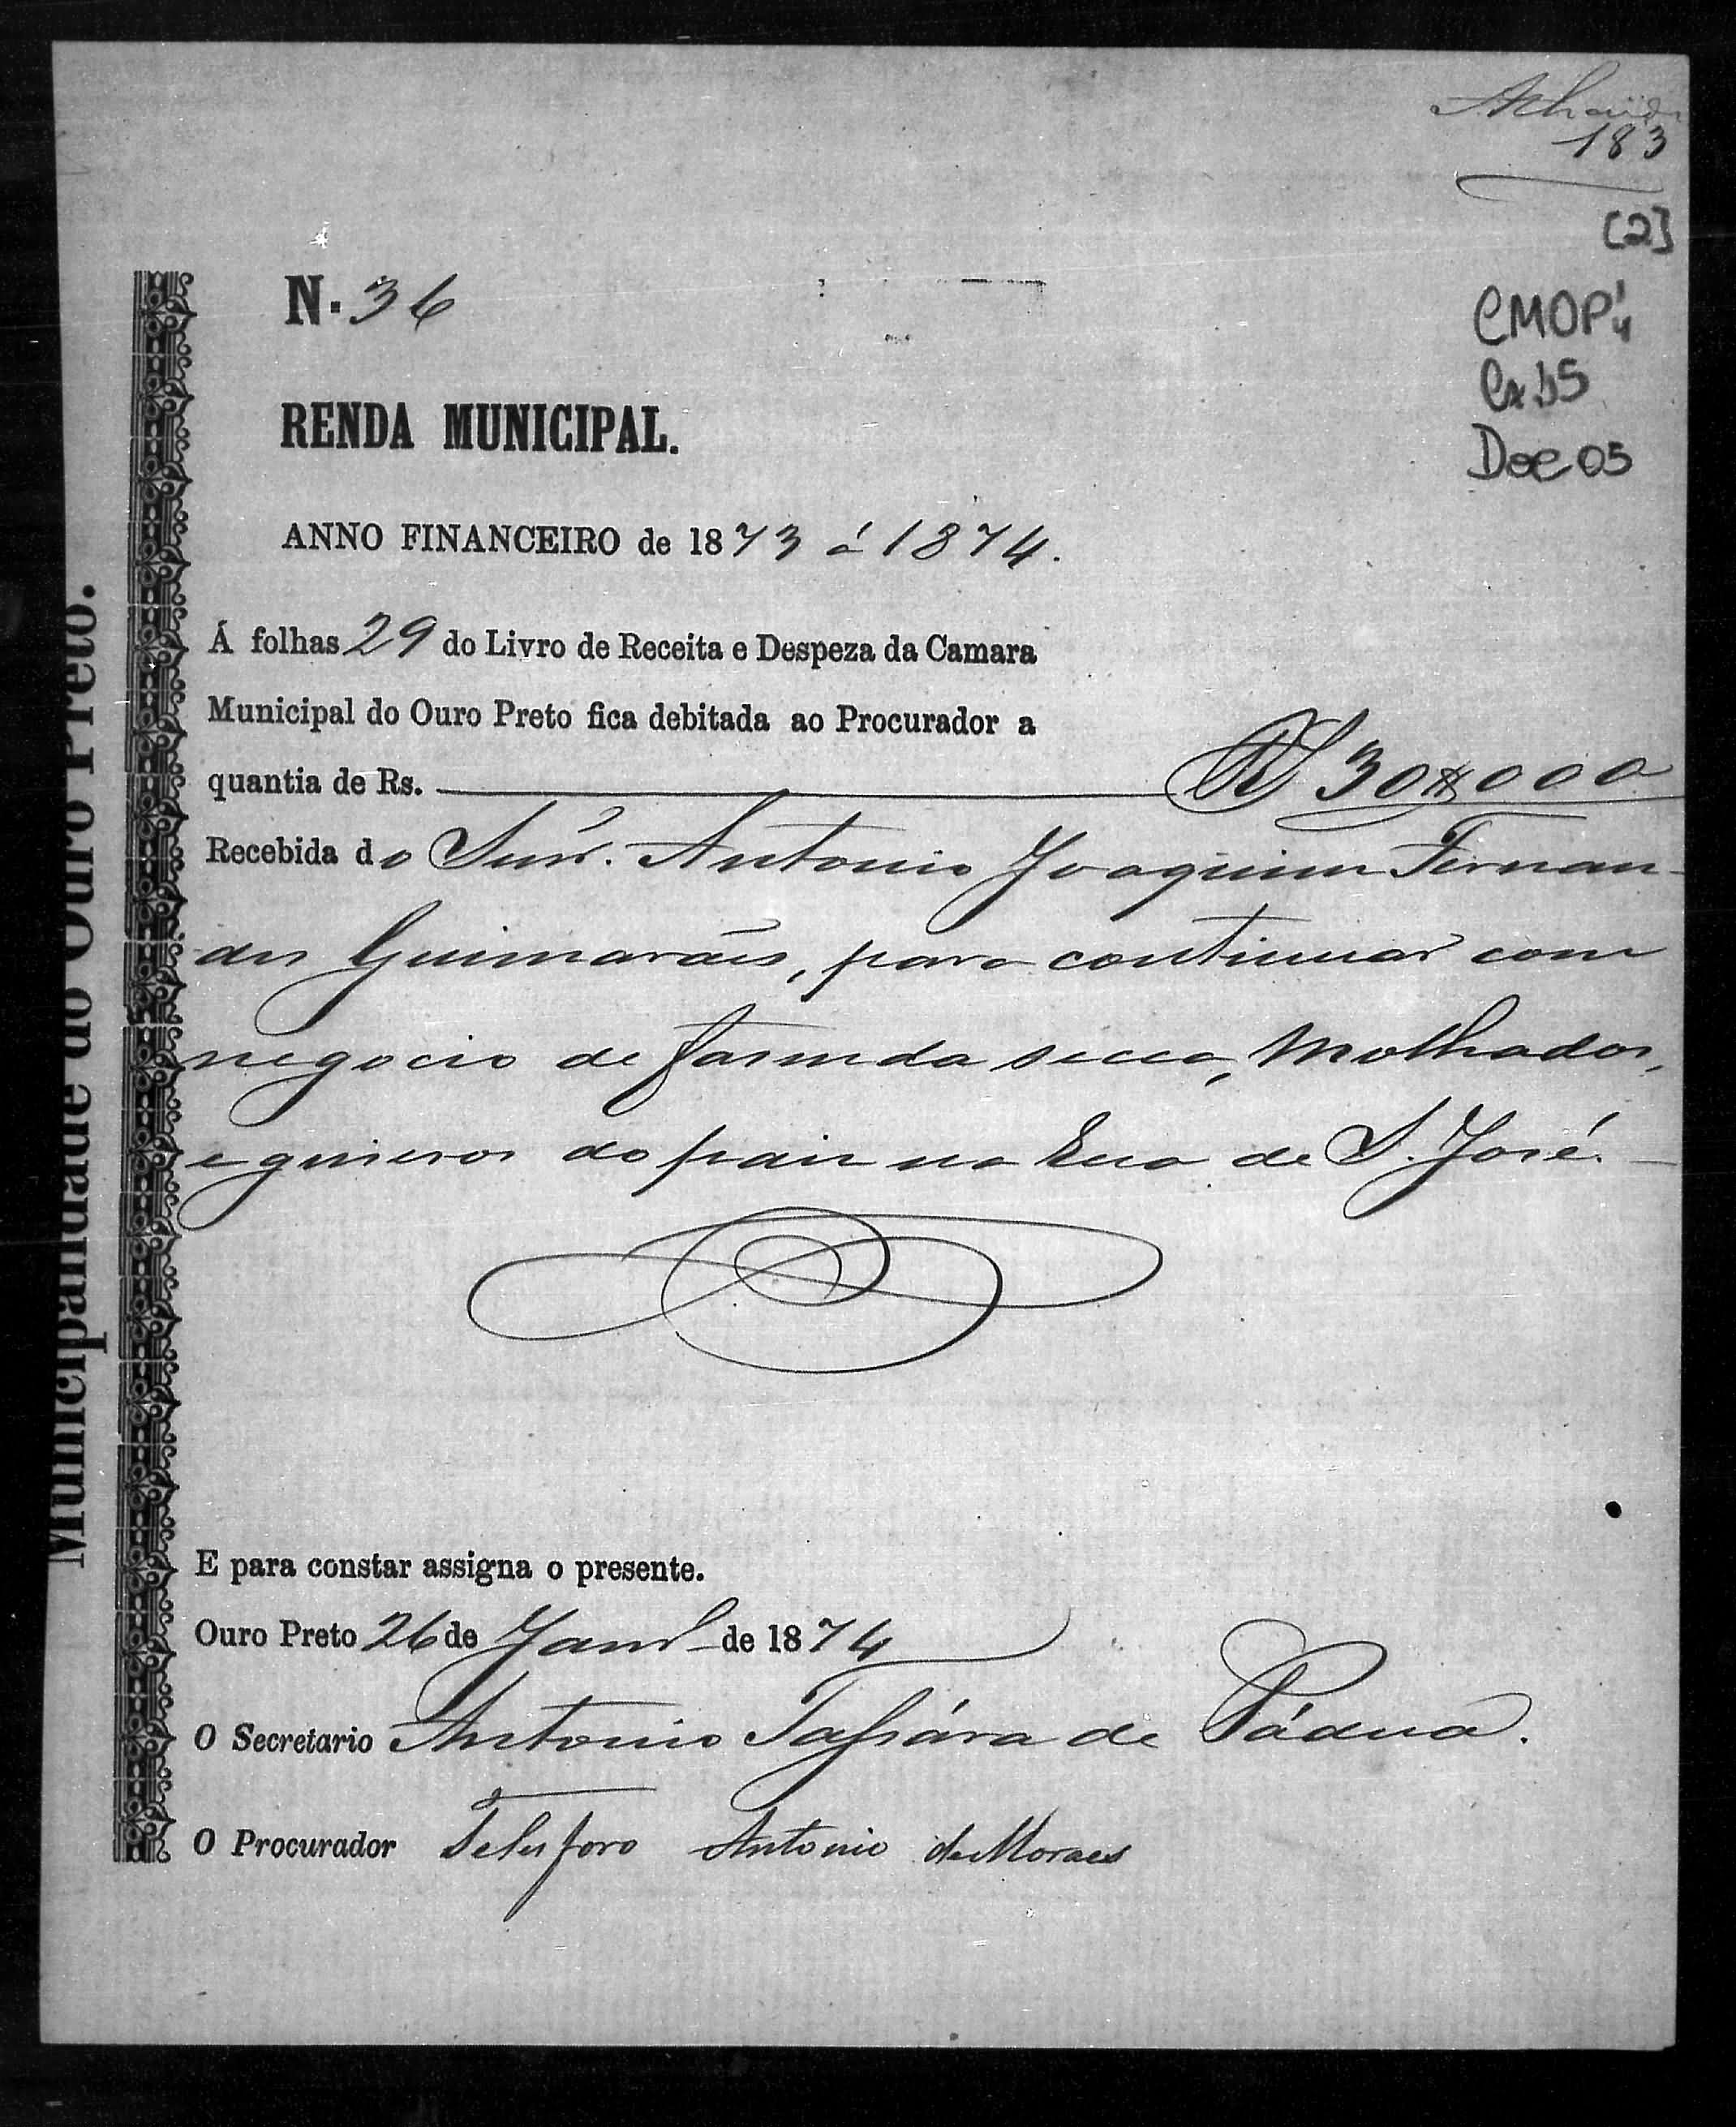 183
[2]
CMOP
Cx 35
Doc 05
N. 36
RENDA MUNICIPAL.
ANNO FINANCEIRO de 1873 á 1874.
Á folhas 29 do Livro de Receita e Despeza da Camara
Municipal do Ouro Preto fica debitada ao Procurador a
quantia de Rs. Rs 30$000
Recebida do Snr. Antonio Joaquim Fernan-
des Guimarães, para continuar com
negocio de fasenda secca, Molhados,
e generos do pais na Rua de S. José.
E para constar assigna o presente.
Ouro Preto 26 de Janr de 1874
O Secretario Antonio Tassára de Pádua.
O Procurador Telesforo Antonio de Moraes
Municipalidade do Ouro Preto.